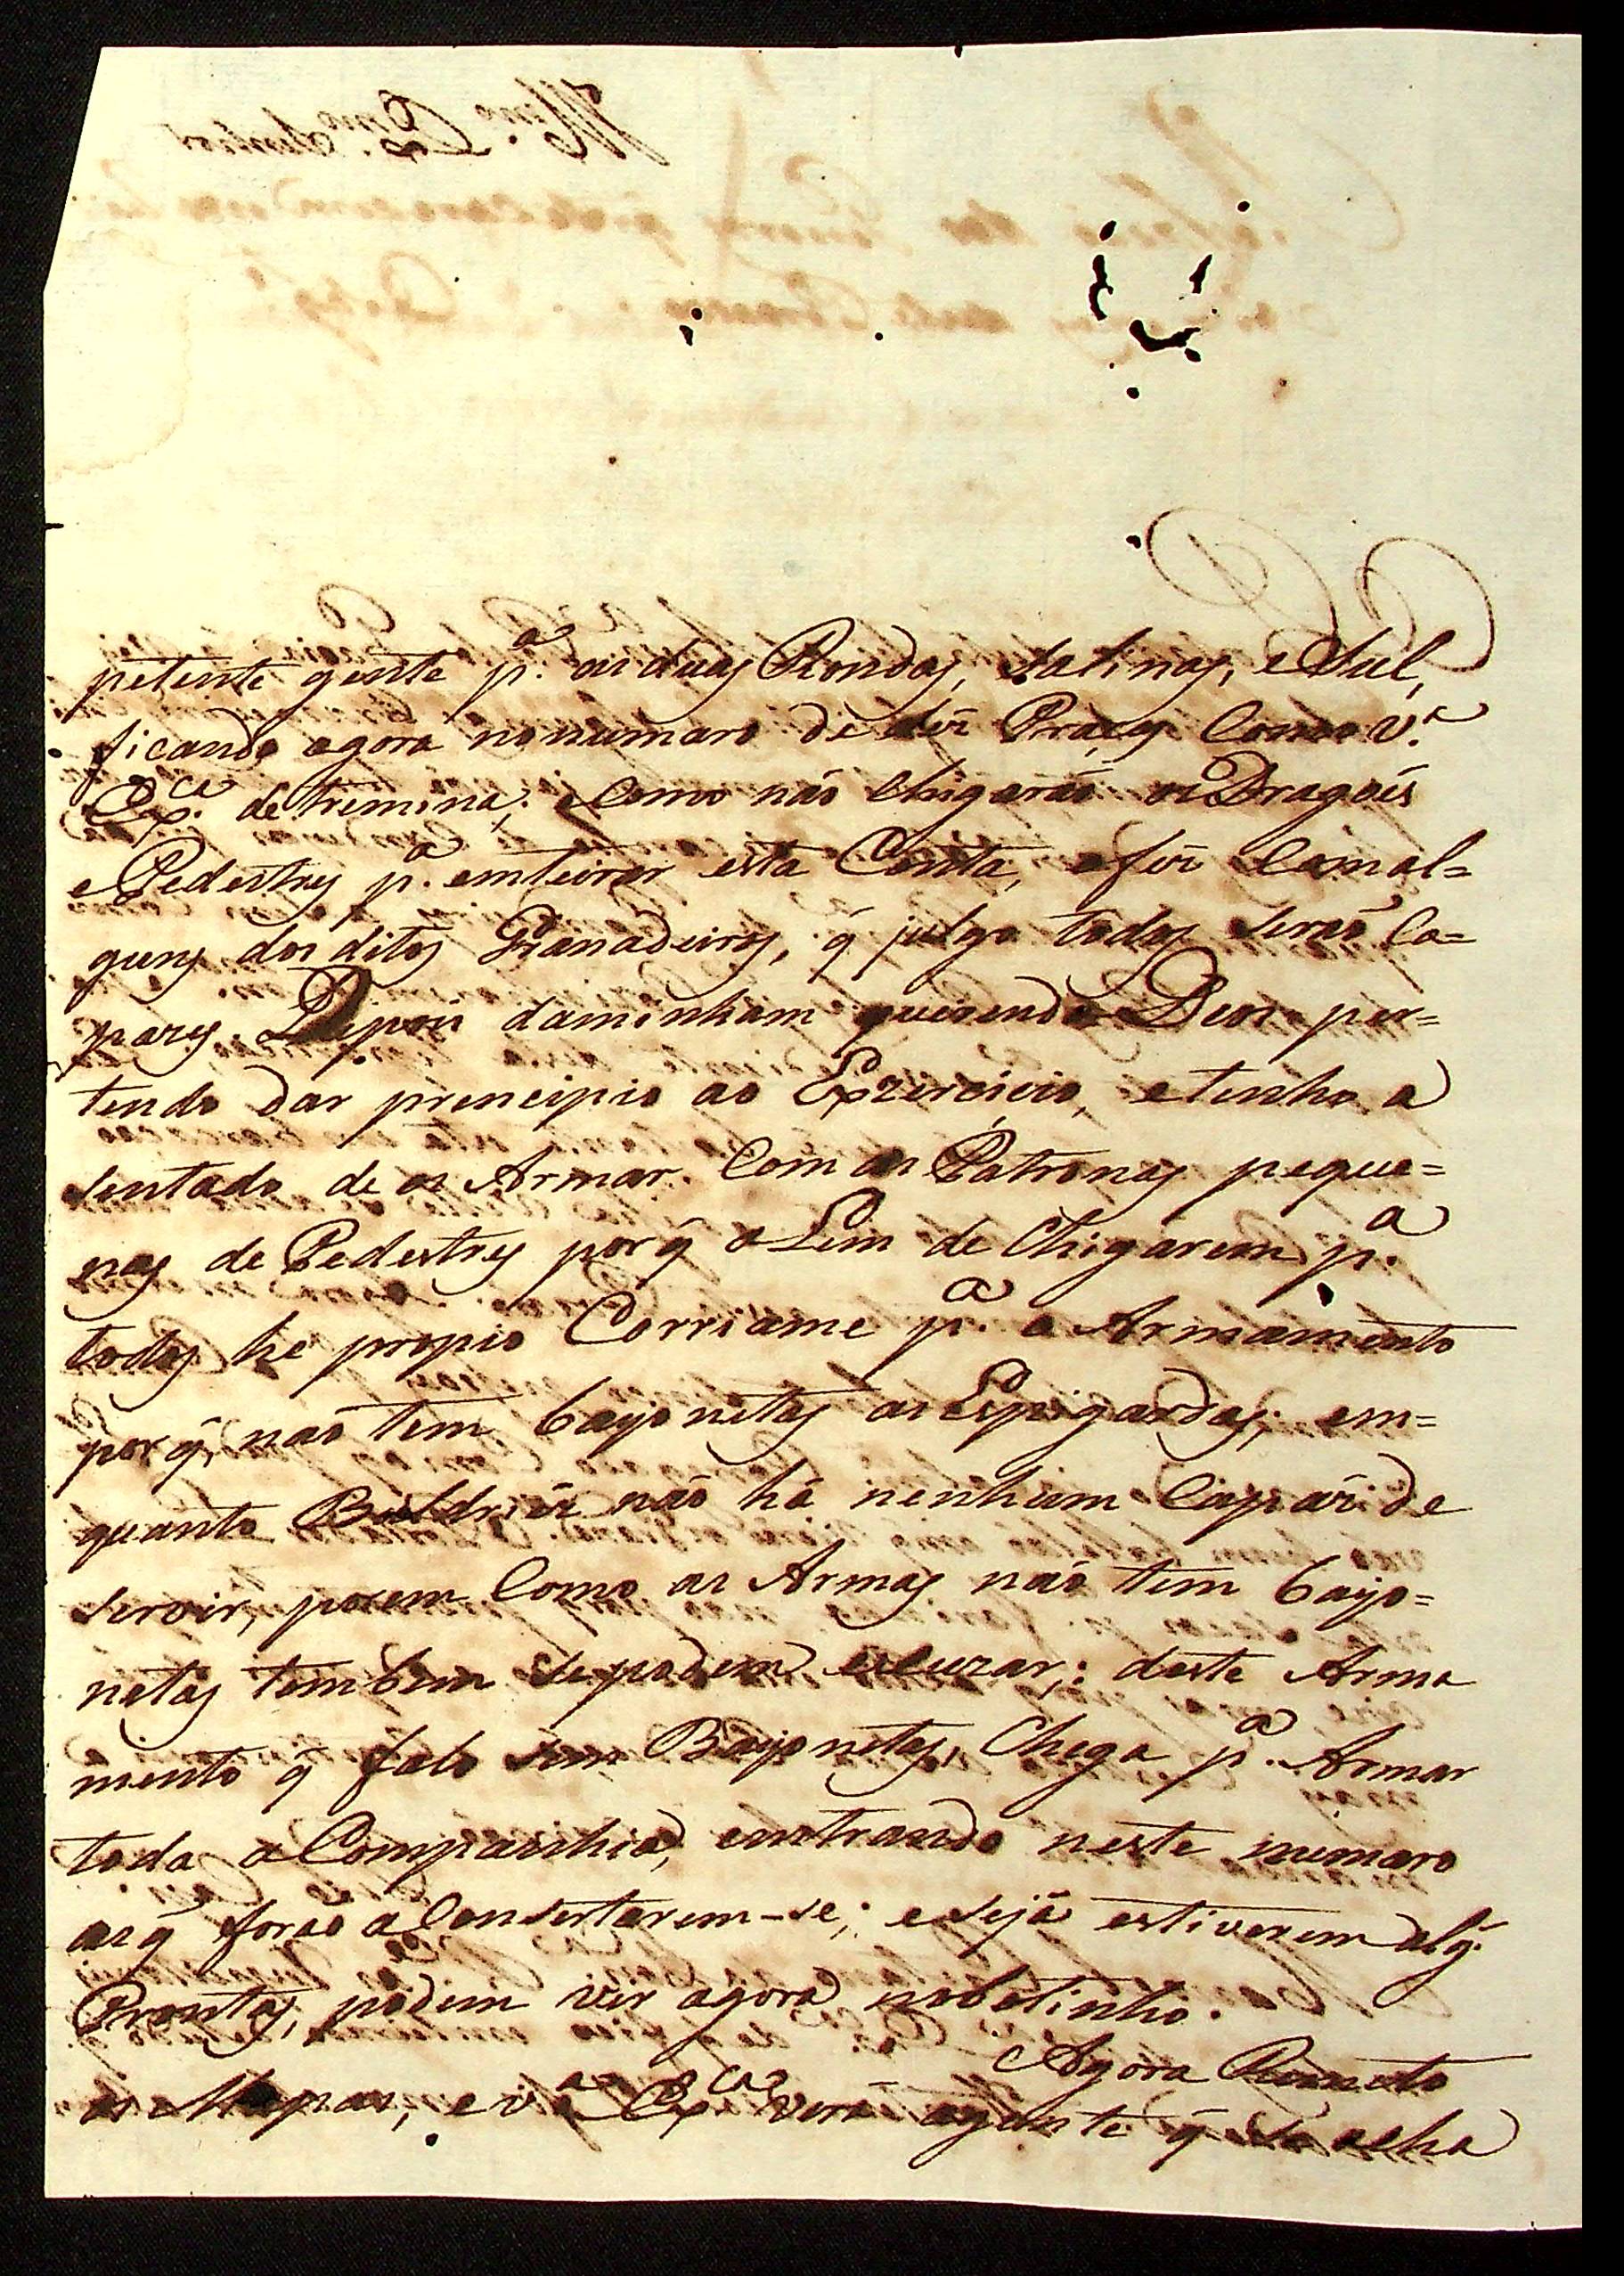 petente gente p.ª as duas Rondas, Salinas, e Sul,
ficando agora nonumaro de dés Praças Como V.ª
Ex.ca detremina; e Como naõ Chigaraõ os Dragoẽs
e Pedestres p.ª emteirar esta Conta, o fis Com al=
guns dos ditos Granadeiros, q̃ julgo todos seraõ Ca=
pazes. Depois daminham querendo Deos per=
tendo dar principio ao Exzercicio, e tenho a
sentado de os Armar Com as Patronas peque=
nas de Pedestres por q̃ o Lem de Chigarem p.ª
todos he propio Corriame p.ª o Armamento
por q̃ naõ tem bayonetas as Espigardas; em=
quanto Boldriés naõ há nenhum Capás de
servir, porem Como as Armas naõ tem bayo=
netas tembem se podem escuzar; deste Arma
mento q̃ falo sem Bayonetas, Chega p.ª Armar
toda a Companhia, emtrando neste numaro
as q̃ foraõ a Consertarem-se; e sejá estiverem alg̃.
Prontas, podem vir agora nobotinho.
Agora Remeto
os Mapas, e V.ª Ex.ca verá agente q̃ se acha